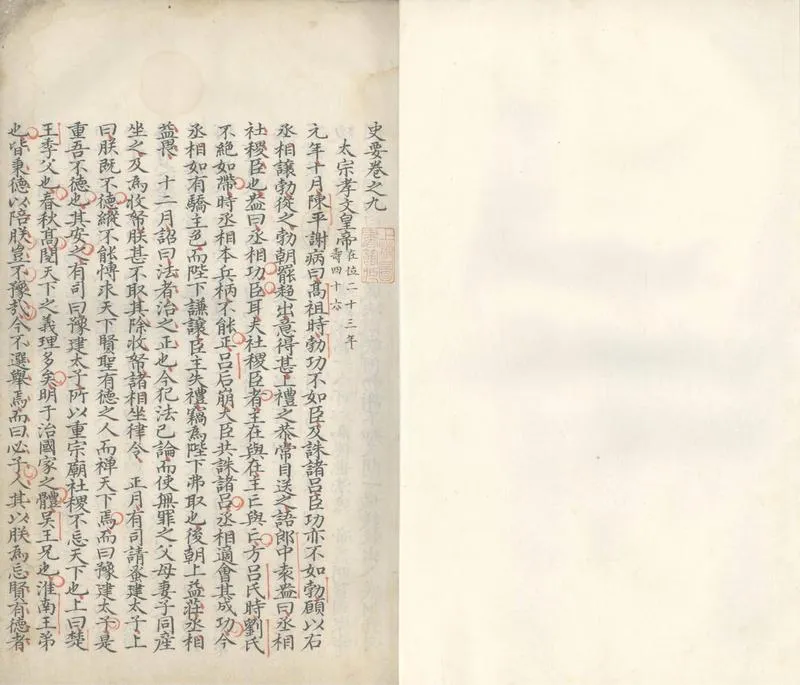 史要卷之九
太宗孝文皇帝在位二十三年壽四十六
元年十月陳平謝病曰高祖時勃功不如臣及誅諸呂臣功亦不如勃願以右
丞相讓勃從之勃朝罷趨出意得甚上禮之恭常目送之語郎中袁盎曰丞相
社稷臣也盎曰丞相功臣耳夫社稷臣者主在與在主亡與亡方呂氏時劉氏
不絕如帶時丞相本兵柄不能正呂后崩大臣共誅諸呂丞相適會其成功今
丞相如有驕主色而陛下謙讓臣主失禮竊為陛下弗取也後朝上益莊丞相
益畏　十二月詔曰法者治之正也今犯法已論而使無罪之父母妻子同産
坐之及為收帑朕甚不取其除收帑諸相坐律令　正月有司請蚤建太子上
曰朕既不德縱不能愽求天下賢聖有德之人而禅天下焉而曰豫建太子是
重吾不德也其安之有司曰豫建太子所以重宗廟社稷不忘天下也上曰楚
王季父也春秋高閱天下之義理多矣明于治國家之體吳王兄也淮南王弟
也皆秉德以陪朕豈不豫哉今不選舉焉而曰必子人其以朕為忘賢有德者